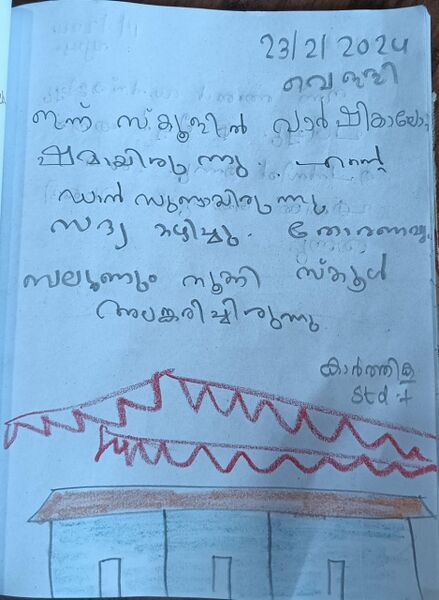 23/2/2024
വെള്ളി
ഇന്ന് സ്കൂളിൽ വാർഷികാഘോ
ഷമായിരുന്നു. എന്റെ
ഡാൻസുണ്ടായിരുന്നു
സദ്യ കഴിച്ചു. തോരണവും
ബലൂണും തൂക്കി സ്കൂൾ
അലങ്കരിച്ചിരുന്നു
കാർത്തിക
Std :